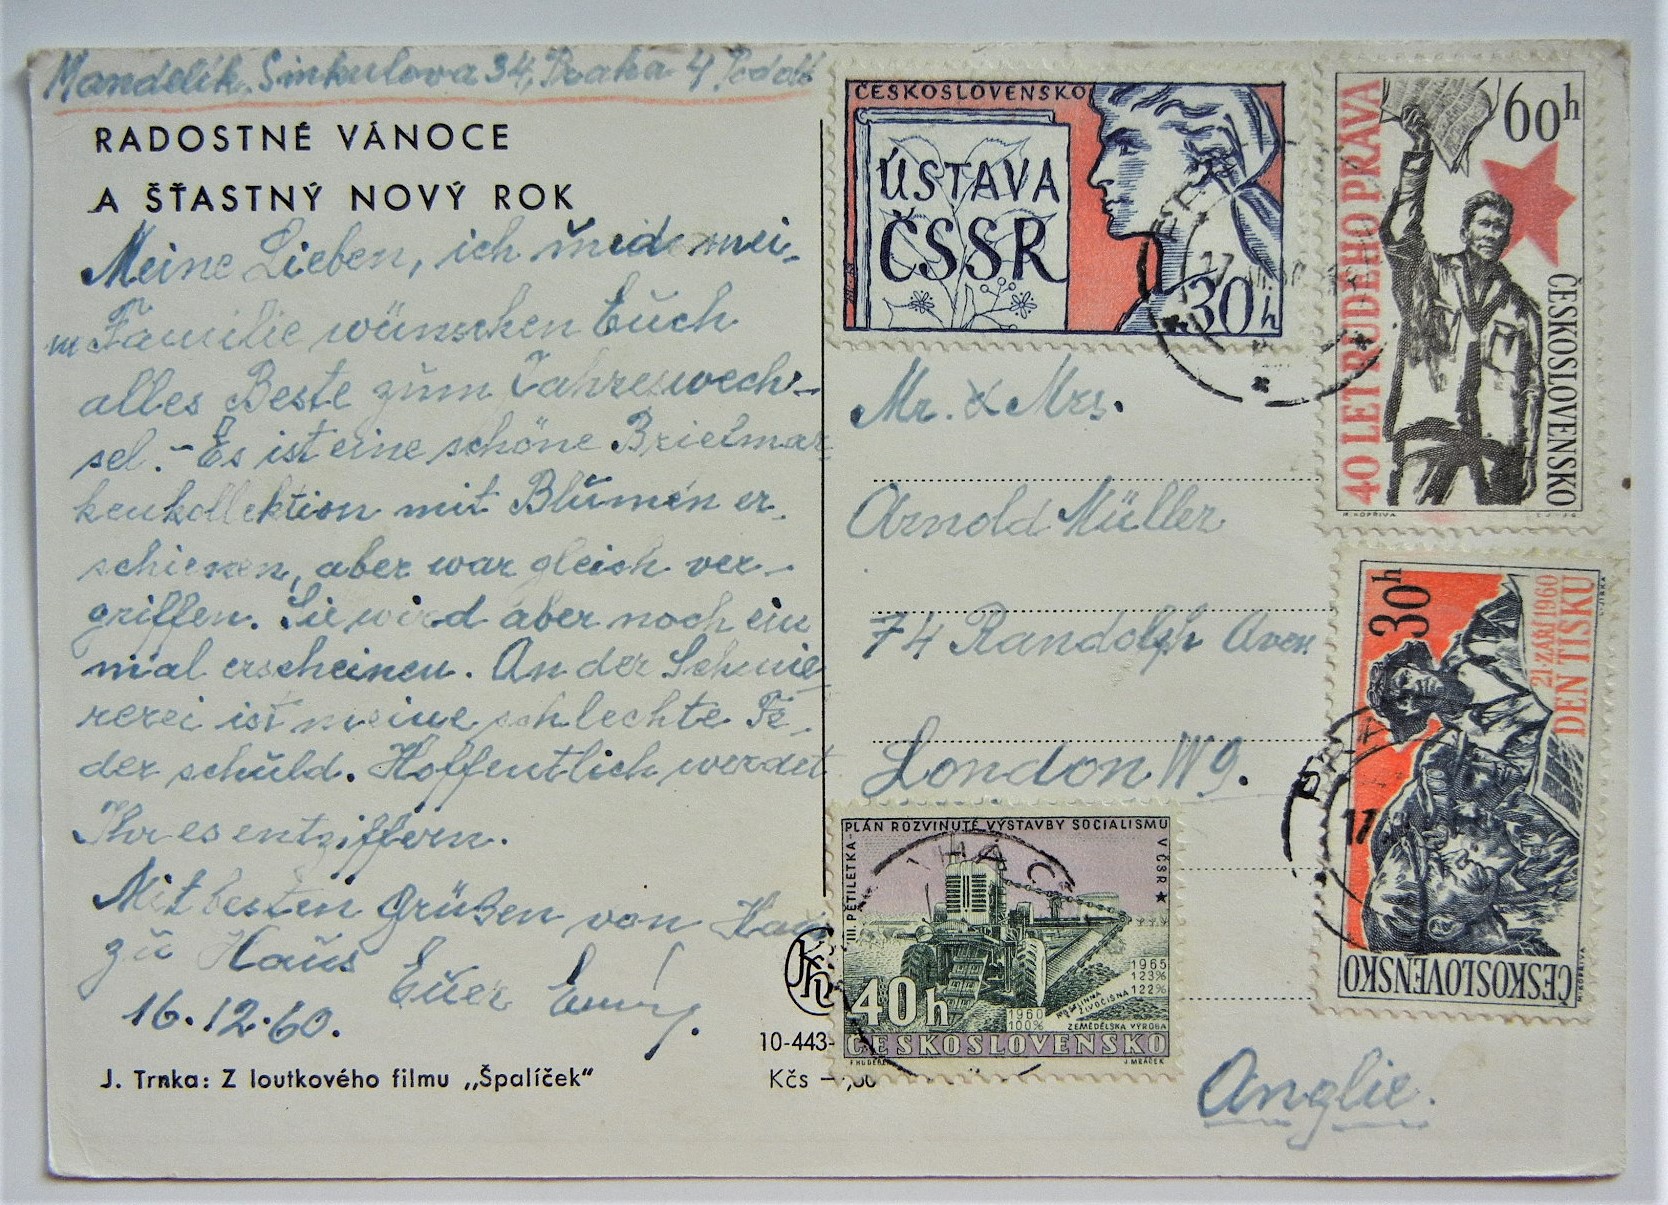 Mandelík, Sinkulova 34, Praha 4 Podolí
RADOSTNÉ VÁNOCE
A ŠŤASTNÝ NOVÝ ROK
Meine Lieben, ich und mei-
Familie wünschen Euch
alles Beste zum Jahreswech-
sel. - Es ist eine schöne Briefmar-
kenkollektion mit Blumen er-
schienen, aber war gleich ver-
griffen. Sie wird aber noch ein
mal erscheinen. An der Schmie-
rerei ist meine schlechte Fe-
der schuld. Hoffentlich werdet
Ihr es entziffern.
Mit besten Grüßen von Haus
zu Haus Euer
16.12.60.
J. Trnka: Z loutkového filmu „Špalíček"
10-443-
Kčs –
ČESKOSLOVENSKO
ÚSTAVA
ČSSR
30h
60h
40 LET RUDÉHO PRÁVA
ČESKOSLOVENSKO
R. KOPŘIVA
Mr. & Mrs.
Arnold Müller
74 Randolph Aven
London W9.
Anglie.
30h
21. ZÁŘÍ 1960
DEN TISKU
ČESKOSLOVENSKO
PLÁN ROZVINUTÉ VÝSTAVBY SOCIALISMU
V ČSR
III. PĚTILETKA
1965
123%
122%
ROSTLINNÁ
ŽIVOČIŠNÁ
1960
100%
ZEMĚDĚLSKÁ VÝROBA
40h
ČESKOSLOVENSKO
J. MRÁČEK
17